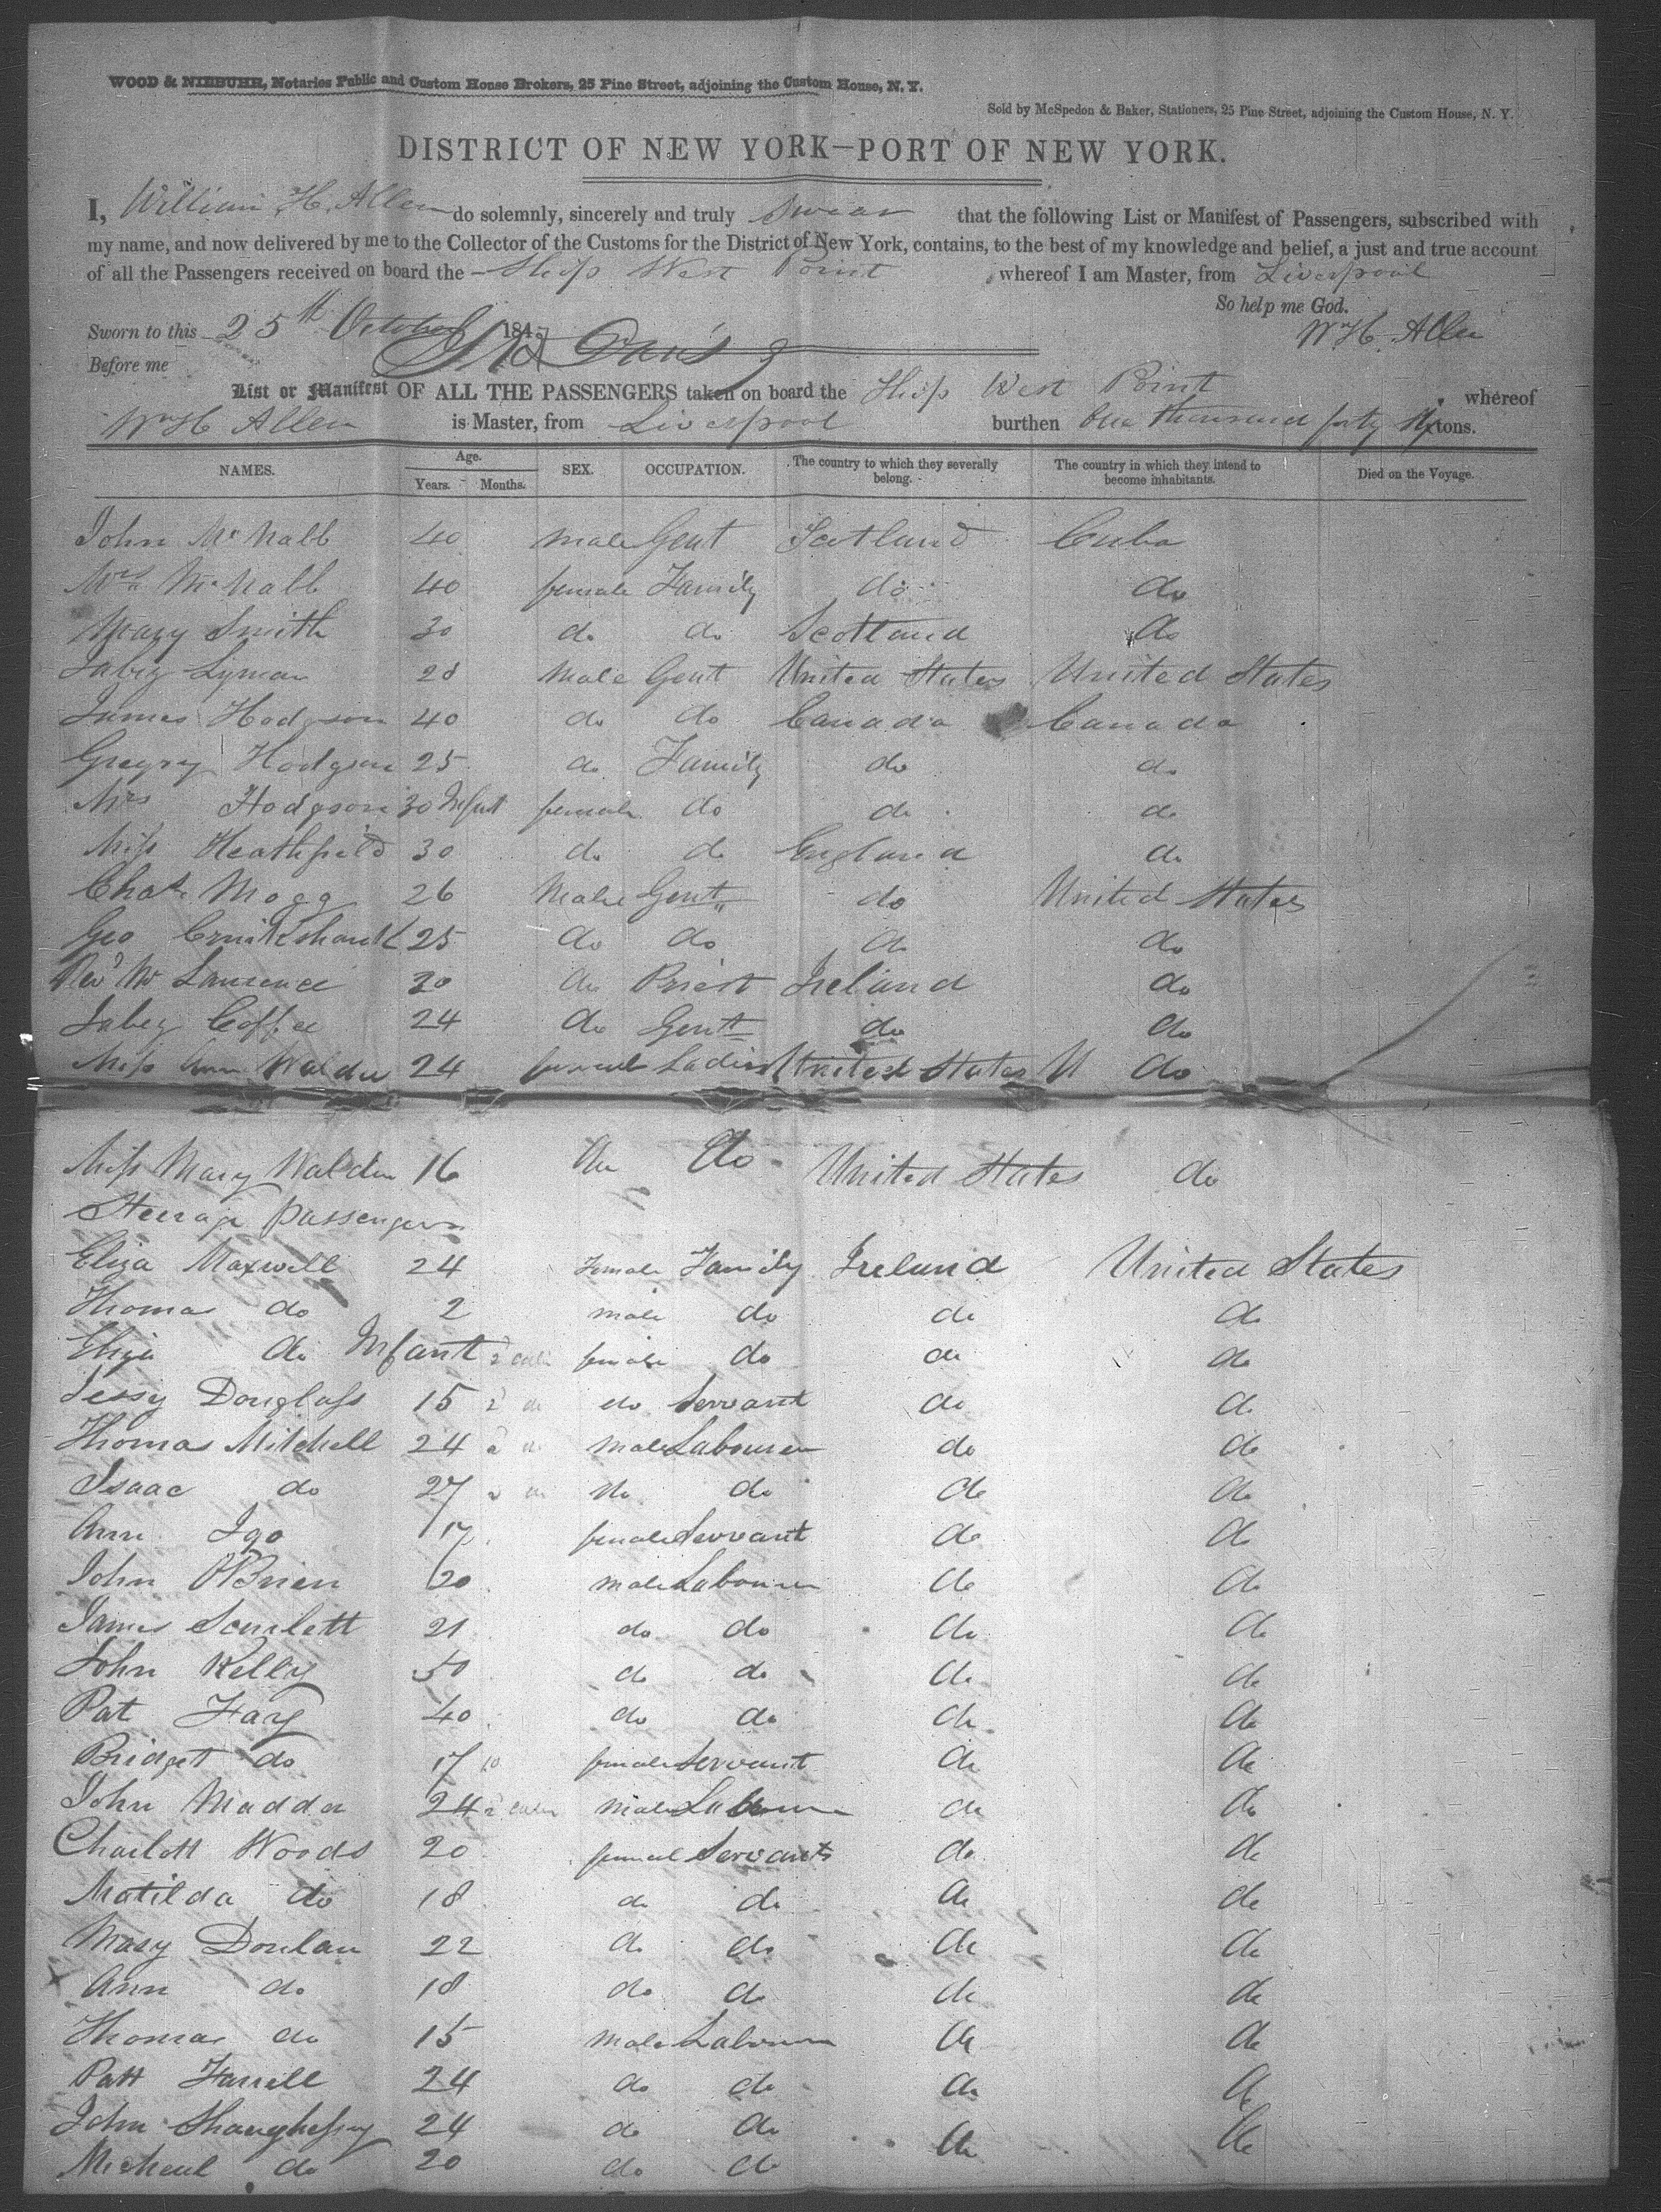 WOOD & NIEBUHR, Notaries Public and Custom House Brokers, 25 Pine Street, adjoining the Custom House, N. Y.
Sold by McSpedon & Baker, Stationers, 25 Pine Street, adjoining the Custom House, N. Y.
DISTRICT OF NEW YORK—PORT OF NEW YORK.
I, William H. Allen do solemnly, sincerely and truly swear that the following List or Manifest of Passengers, subscribed with
my name, and now delivered by me to the Collector of the Customs for the District of New York, contains, to the best of my knowledge and belief, a just and true account
of all the Passengers received on board the Ship West Point whereof I am Master, from Liverpool
So help me God.
Sworn to this 25th October 1847 Wm H. Allen
Before me
List or Manifest OF ALL THE PASSENGERS taken on board the Ship West Point whereof
Wm H Allen is Master, from Liverpool burthen One thousand forty six tons.
NAMES. Age. Years. Months. SEX. OCCUPATION. The country to which they severally belong. The country in which they intend to become inhabitants. Died on the Voyage.
John McNabb 40 male Gent Scotland Cuba
Mrs McNabb 40 female Family do do
Mary Smith 30 do do Scotland do
Jabez Lyman 28 Male Gent United States United States
James Hodgson 40 do do Canada Canada
Gregory Hodgson 25 do Family do do
Mrs Hodgson 30 Infant female do do do
Miss Heathfield 30 do do England do
Chas Mogg 26 Male Gent do United States
Geo Cruikshank 25 do do do do
Revd Mr Lawrence 30 do Priest Ireland do
Jabez Coffee 24 do Gent do do
Miss Ann Walden 24 female Ladies United States U do
Miss Mary Walden 16 do do United States do
Steerage passengers
Eliza Maxwell 24 Female Family Ireland United States
Thomas do 2 male do do do
Eliza do Infant female do do do
Jessy Douglass 15 do Servant do do
Thomas Mitchell 24 male Labourer do do
Isaac do 27 do do do do
Ann Igo 17 female Servant do do
John O'Brien 20 male Labourer do do
James Scarlett 21 do do do do
John Kelly 50 do do do do
Pat Fary 40 do do do do
Bridget do 17 female Servant do do
John Madden 24 male Labourer do do
Charlott Woods 20 female Servants do do
Matilda do 18 do do do do
Mary Donlan 22 do do do do
Ann do 18 do do do do
Thomas do 15 male Labourer do do
Patt Farrell 24 do do do do
John Shaughnessy 24 do do do do
Micheal do 20 do do